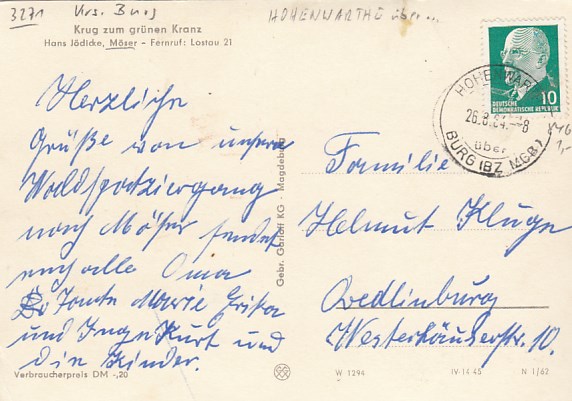 3271 Krs. Burg
HOHENWARTHE über...
Krug zum grünen Kranz
Hans Jödicke, Möser - Fernruf: Lostau 21
DEUTSCHE
DEMOKRATISCHE REPUBLIK
10
HOHENWAR
26.8.64.-8
über
BURG (BZ MGB.)
Herzliche
Grüße von unserem
Waldspatziergang
nach Möser sendet
euch alle Oma
Tante Marie Erika
und Inge Kurt und
die Kinder.
Familie
Helmut Kluge
Qedlinburg
Westerhäuserstr. 10.
Gebr. Garloff KG · Magdeburg
Verbraucherpreis DM -,20
W 1294
IV-14-45
N 1/62